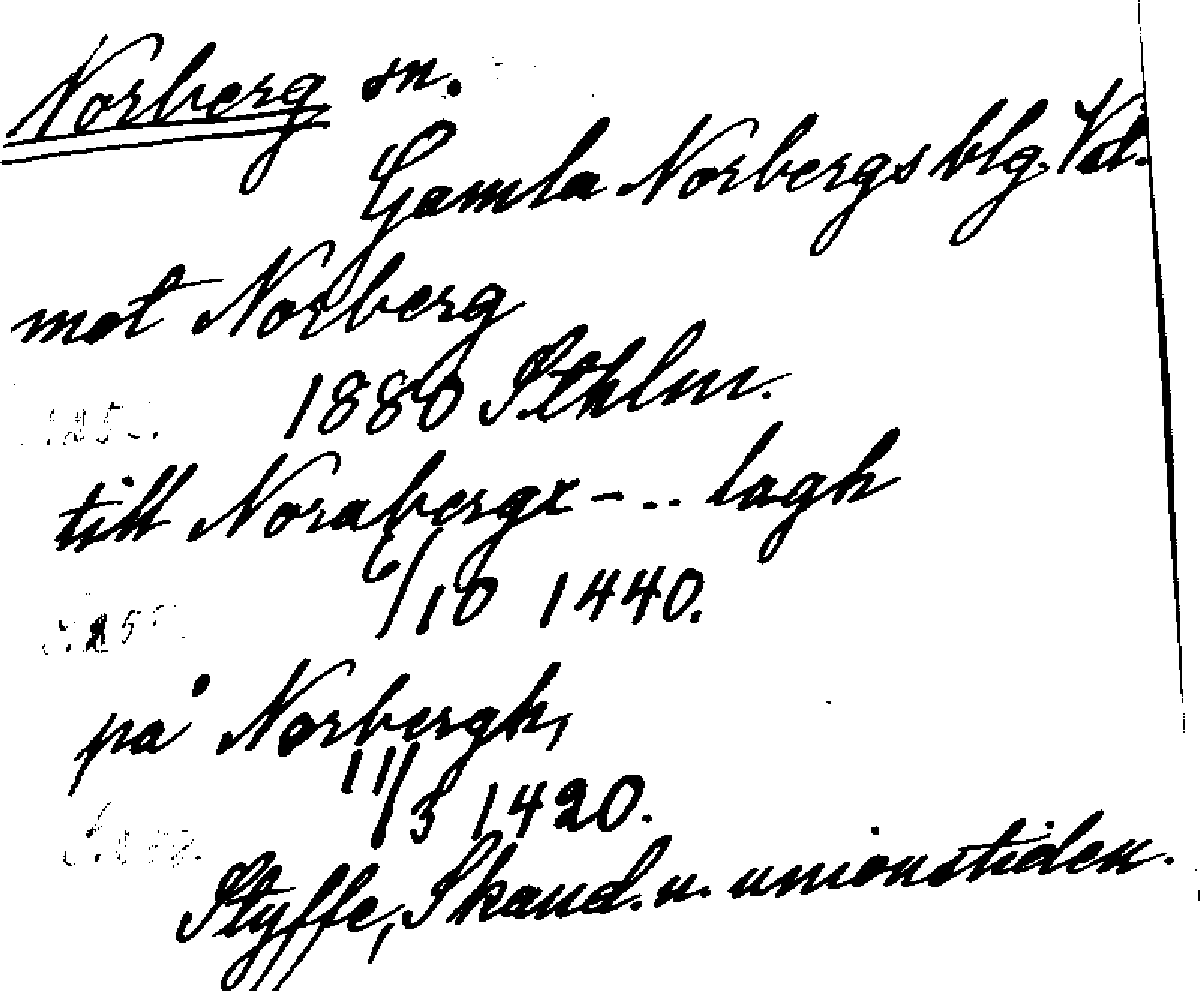 Norberg sn.
Gamla Norbergs blg. Vstl.
mot Norberg
1880 Sthlm.
till Norabergx - .. lagh
6/10 1440.
på Norbergh,
11/3 1420.
Styffe, Skand. u. unionstiden.